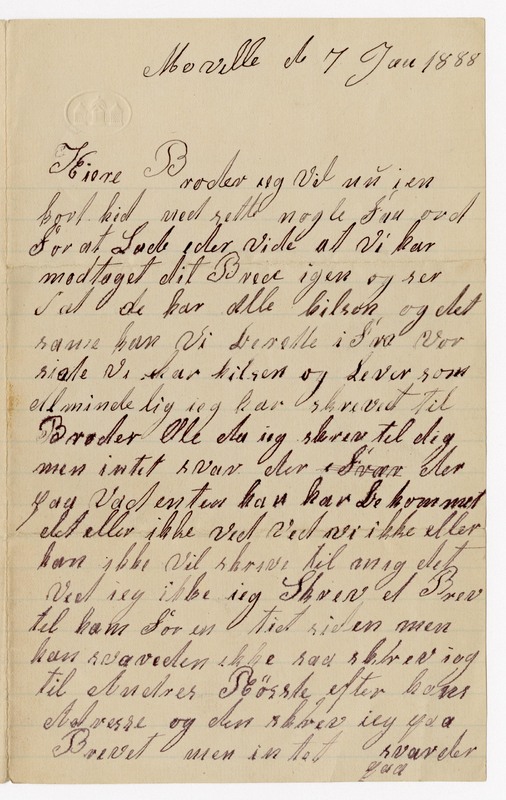 Moville de 7 Jan 1888
Kiere Broder ieg Vil nu i en
kort tid ned sette nogle Faa ord
For at Lade eder vide at Vi har
modtaget dit Brev igen og ser
at de har alle hilsen og det
same kan Vi berette i Fra Vor
side Vi har hilsen og Lever som
alminde lig ieg har skrevet til
Broder Ole da ieg skrev til dig
men intet svar der Svar der
paa Vad enten han har Be kommet
det eller ikke ved Ved vi ikke eller
han ikke Vil skrive til mig det
Ved ieg ikke ieg Skrev et Brev
til ham For en tid siden men
han svaveden ikke saa skrev ieg
til Andres Rösste efter hans
Adresse og den skrev ieg paa
Brevet men intet svar der
paa